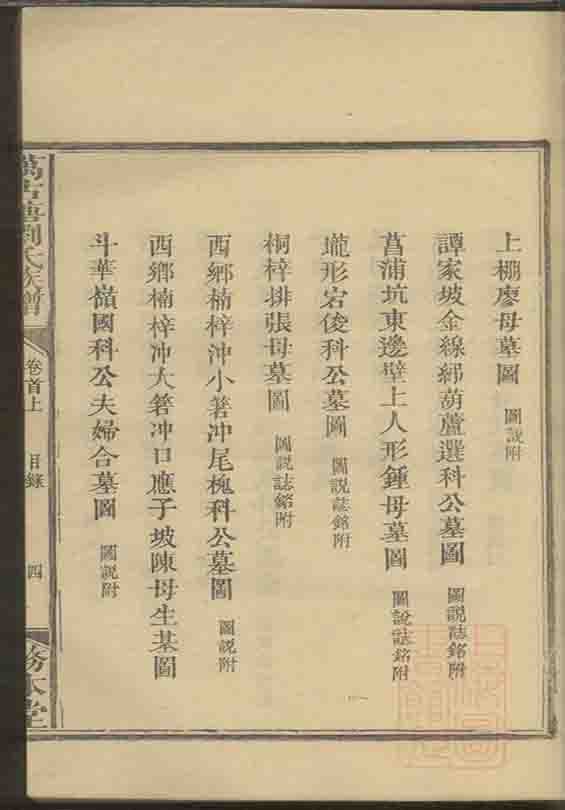 上棚廖母墓圖 圖說附
譚家坡金線綁葫蘆選科公墓圖 圖說誌銘附
菖浦坑東邊壁上人形鍾母墓圖 圖說誌銘附
壠形宕俊科公墓圖 圖說誌銘附
桐梓排張母墓圖 圖說誌銘附
西鄉楠梓沖小箬沖尾槐科公墓圖 圖說附
西鄉楠梓沖大箬沖口應子坡陳母生基圖
斗華嶺國科公夫婦合墓圖 圖說附
萬古塘劉氏族譜 卷首上 目錄 四 務本堂